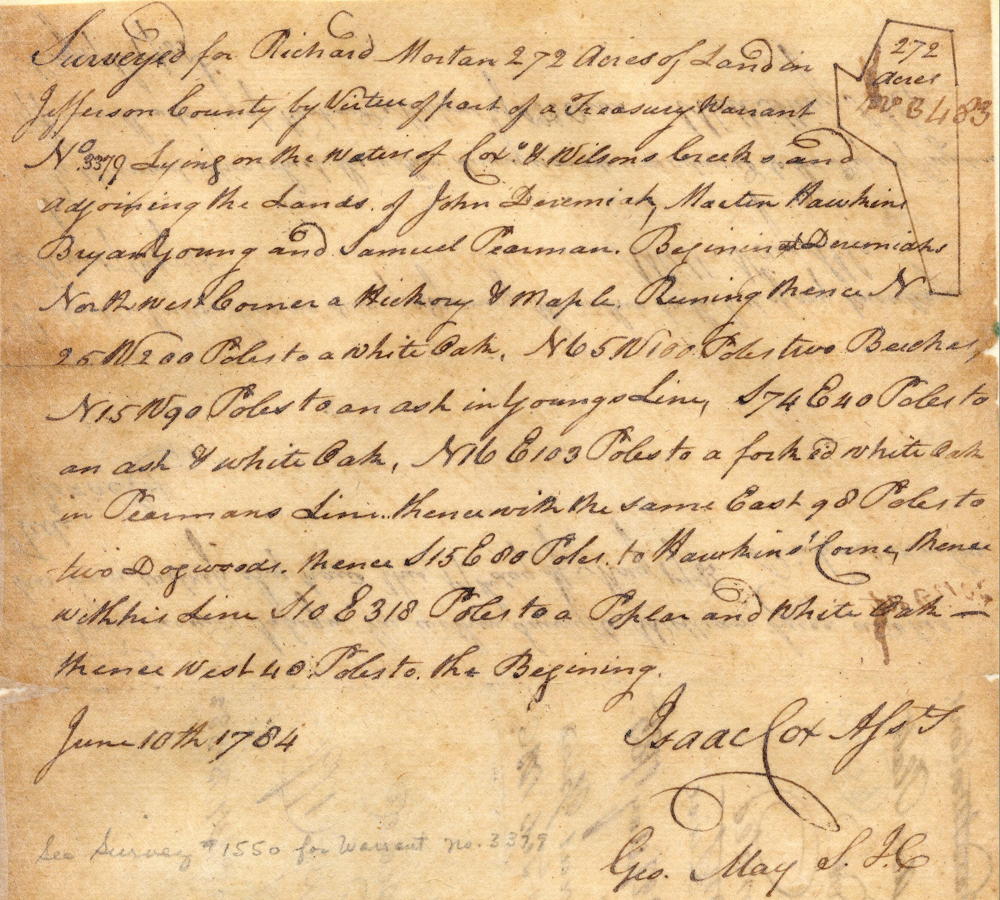 Surveyed for Richard Mortan 272 Acres of Land in
Jefferson County by Virtue of part of a Treasury Warrant
No. 3379 Lying on the Waters of Cox's & Wilsons Creeks and
adjoining the Lands of John Deremiah, Martin Hawkins
Bryan Young and Samuel Pearman. Begining at Deremiahs
North west Corner a Hickory & Maple Runing thence N
25 W 200 Poles to a white Oak, N65 W100 Poles two Beeches,
N15 W90 Poles to an ash in Youngs Line, S74 E40 Poles to
an ash & white Oak, N16 E103 Poles to a fork'd white Oak
in Pearmans Line. thence with the same East 98 Poles to
two Dogwoods. thence S15 E80 Poles. to Hawkins' Corne, thence
with his Line S10 E318 Poles to a Poplar and White Oak —
thence West 40 Poles to. the Begining.
June 10th 1784
Isaac Cox Asst
Geo. May S. J. C
See Survey # 1550 for Warrant no. 3379
272
Acres
No. 3483